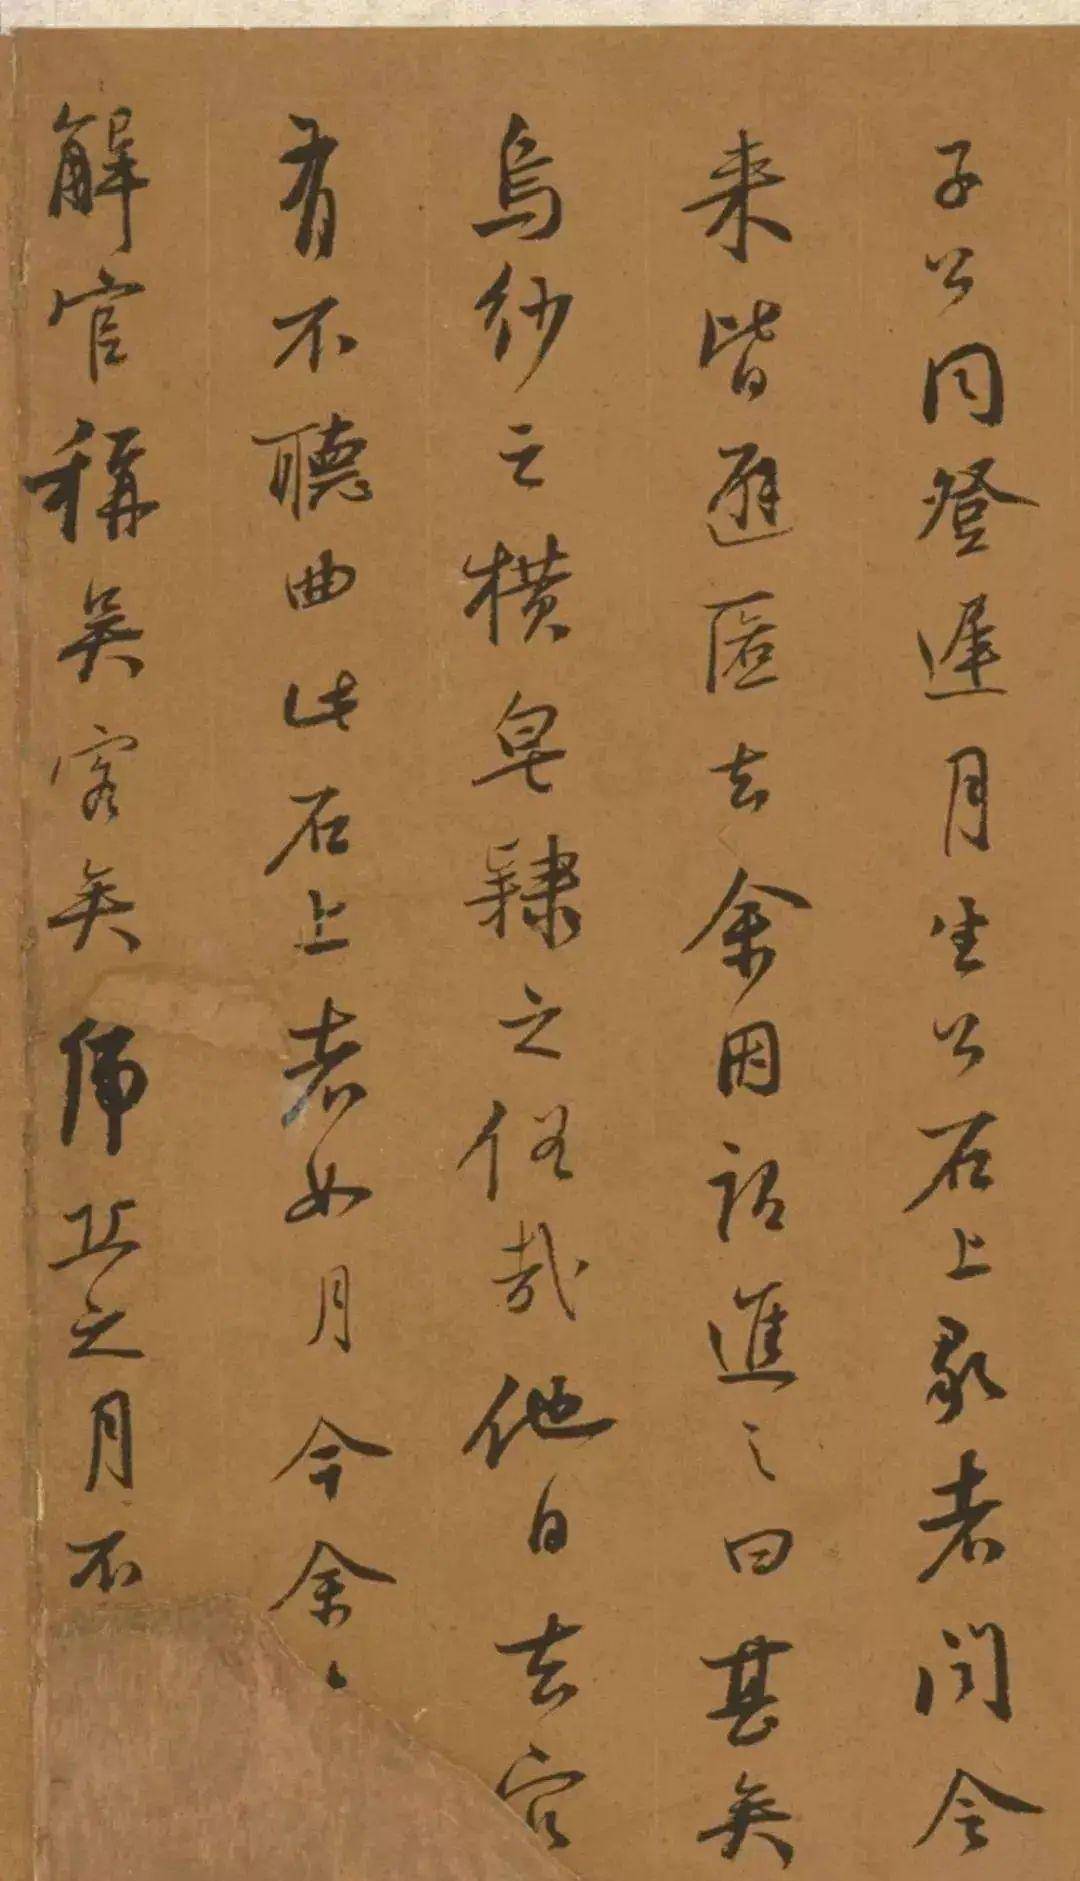 子公同登遲月生公石上歌者聞令
来皆避匿去余因詔進之曰甚矣
烏紗之橫皂隸之俗哉他日去官
有不聽曲此石上者如月今余
解官稱吳客矣虎丘之月不